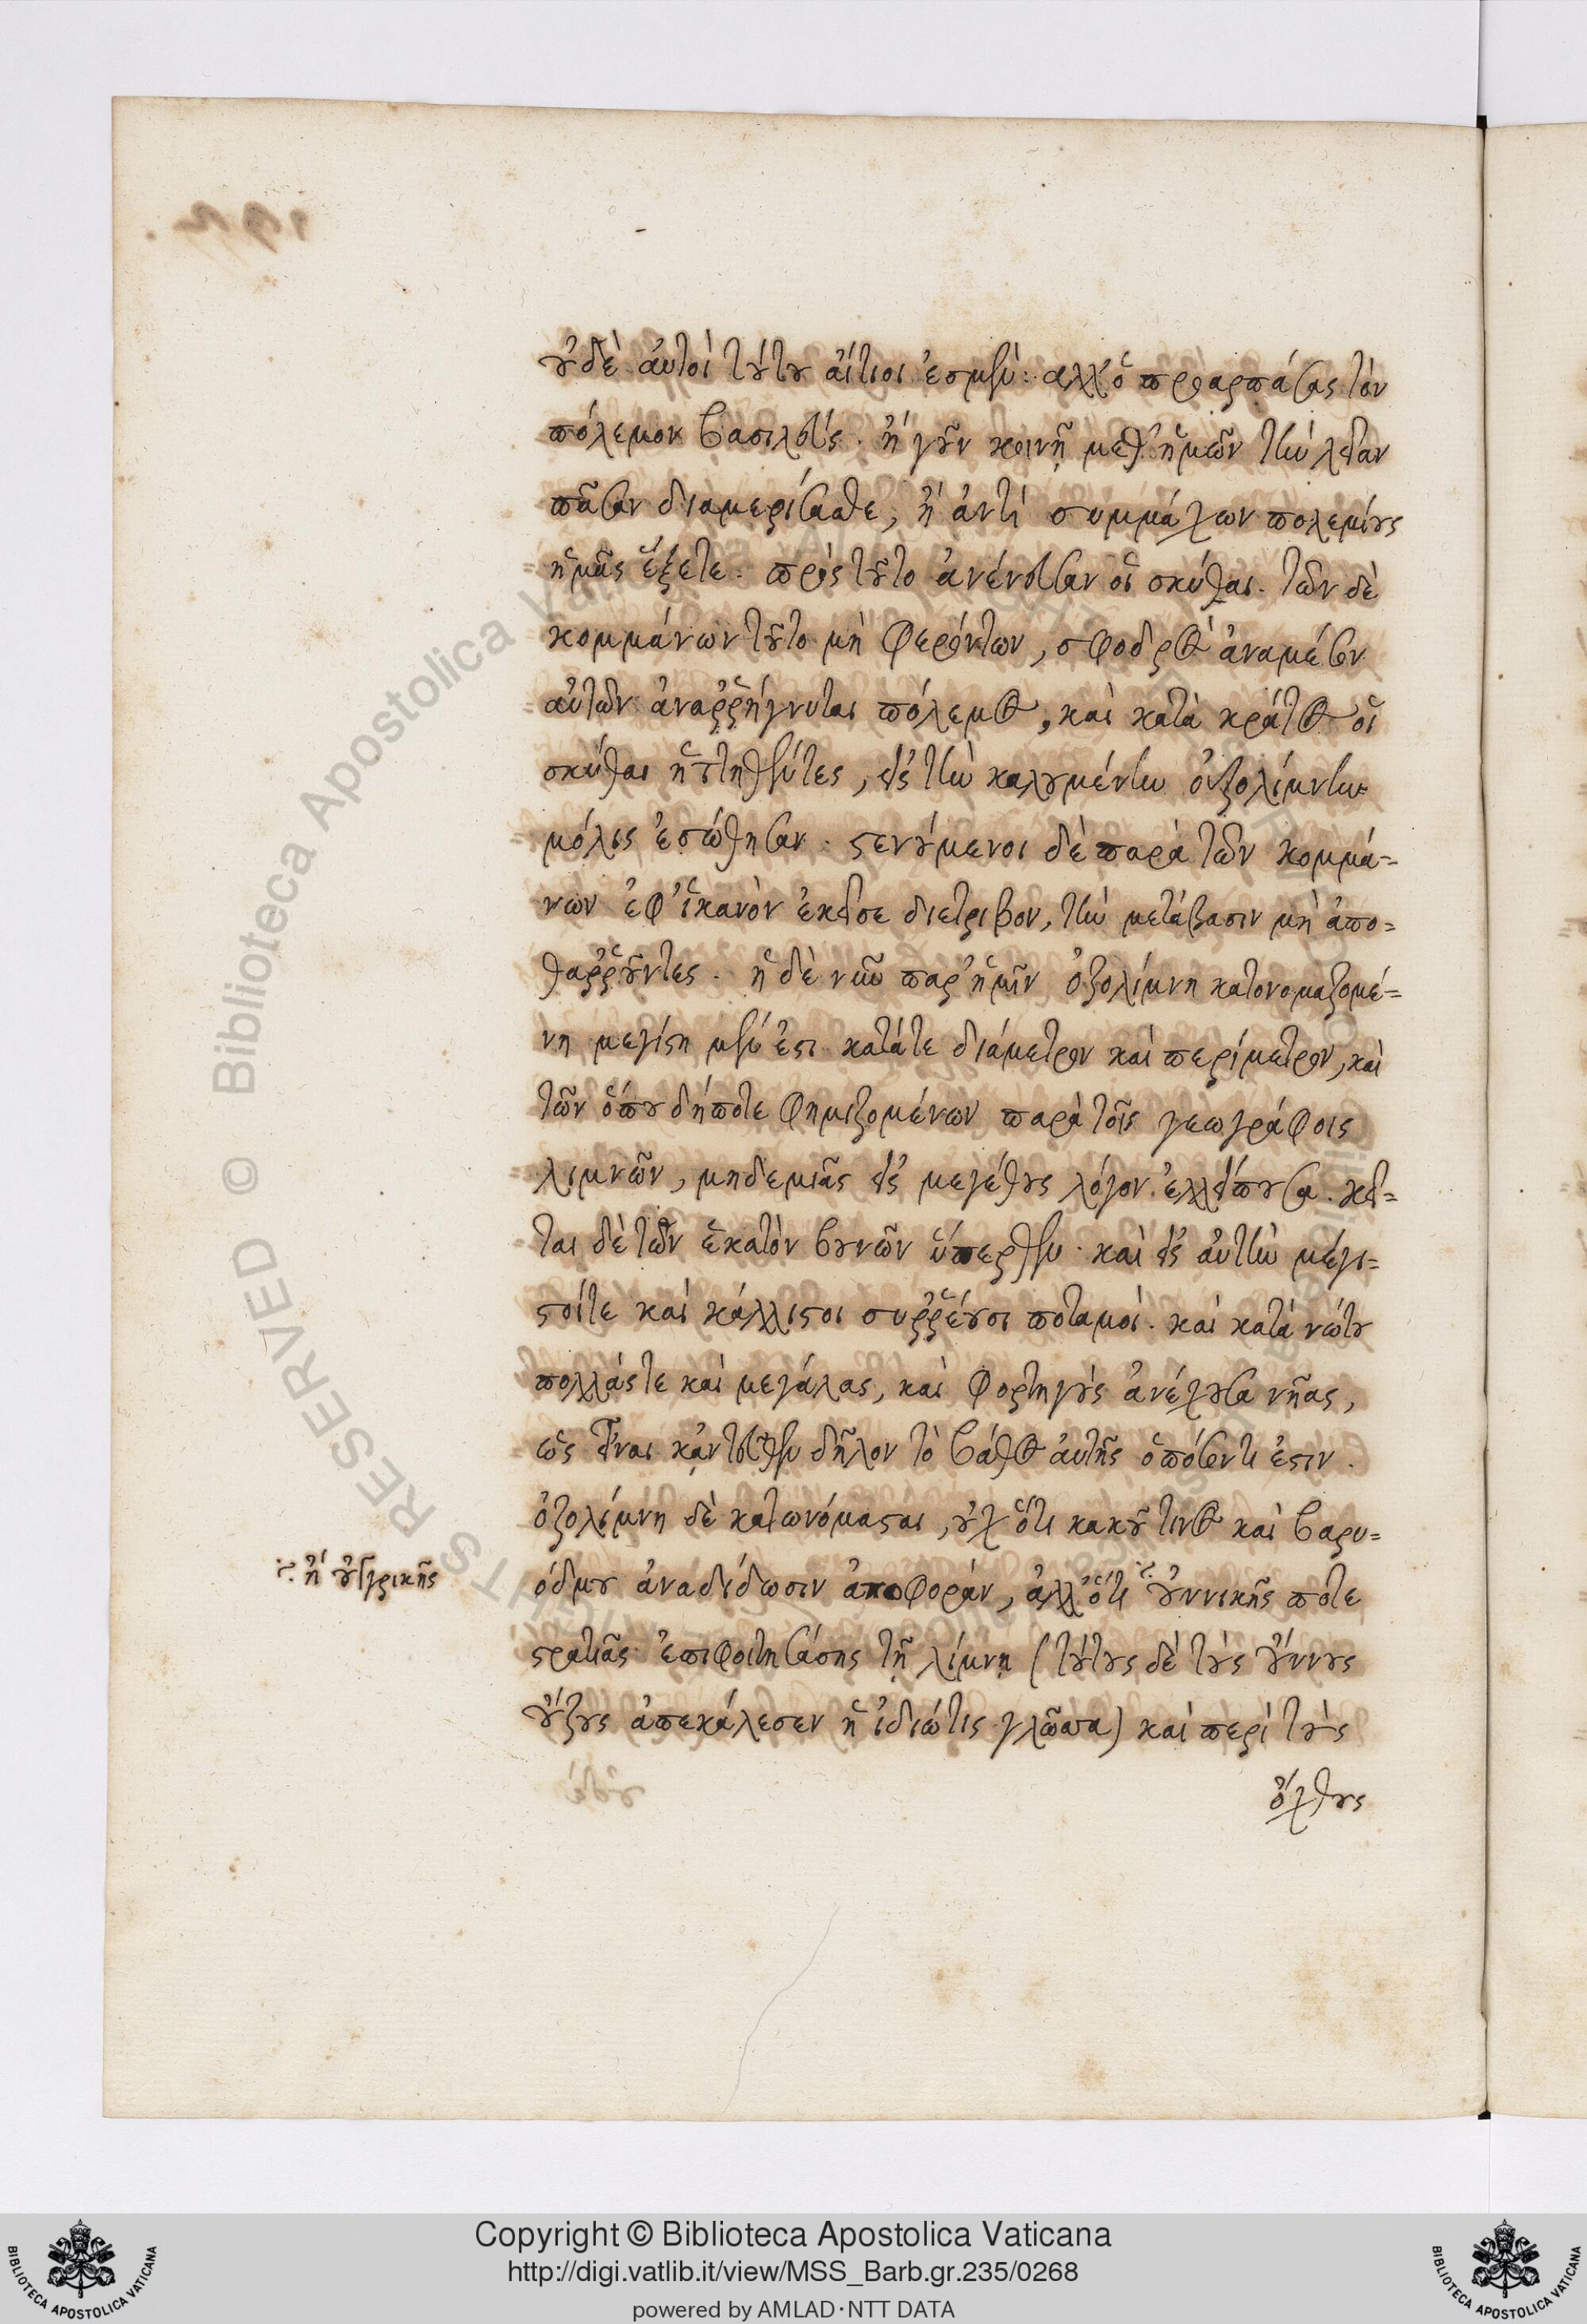 οὐδὲ αὐτοὶ τούτου αἴτιοι ἐσμέν· ἀλλ' ὁ προαρπάσας τὸν
πόλεμον βασιλεύς. ἢ γοῦν κοινῇ μεθ' ἡμῶν τὴν λείαν
πᾶσαν διαμερίσασθε, ἢ ἀντὶ συμμάχων πολεμίους
ἡμᾶς ἕξετε. πρὸς τοῦτο ἀνένευσαν οἱ σκύθαι. τῶν δὲ
κομμάνων τοῦτο μὴ φερόντων, σφοδρὸς ἀναμέσον
αὐτῶν ἀναῤῥήγνυται πόλεμος, καὶ κατὰ κράτος οἱ
σκύθαι ἡττηθέντες, εἰς τὴν καλουμένην ὀυζολίμνην
μόλις ἐσώθησαν. στενούμενοι δὲ παρὰ τῶν κομμά-
νων ἐφ' ἱκανὸν ἐκεῖσε διέτριβον, τὴν μετάβασιν μὴ ἀπο-
θαῤῥοῦντες. ἡ δὲ νῦν παρ' ἡμῖν ὀζολίμνη κατονομαζομέ-
νη μεγίστη μέν ἐστι κατά τε διάμετρον καὶ περίμετρον, καὶ
τῶν ὁπουδήποτε φημιζομένων παρὰ τοῖς γεωγράφοις
λιμνῶν, μηδεμιᾶς εἰς μεγέθους λόγον ἐλλείπουσα. κεῖ-
ται δὲ τῶν ἑκατὸν βουνῶν ὕπερθεν. καὶ εἰς αὐτὴν μέγι-
στοί τε καὶ κάλλιστοι συῤῥέουσι ποταμοί. καὶ κατὰ νώτου
πολλάς τε καὶ μεγάλας, καὶ φορτηγοὺς ἀνέχουσα νῆας,
ὡς εἶναι κἀντεῦθεν δῆλον τὸ βάθος αὐτῆς ὁπόσον τί ἐστιν.
ὀζολίμνη δὲ κατωνόμασται, οὐχ ὅτι κακοῦ τινος καὶ βαρυ-
όδμου ἀναδίδωσιν ἀποφοράν, ἀλλ' ὅτι οὐννικῆς ποτε
ἢ οὐγγρικῆς
στρατιᾶς ἐπιφοιτησάσης τῇ λίμνῃ (τούτους δὲ τοὺς οὔννους
οὔζους ἀπεκάλεσεν ἡ ἰδιώτις γλῶσσα) καὶ περὶ τοὺς
ὄχθους
Copyright © Biblioteca Apostolica Vaticana
http://digi.vatlib.it/view/MSS_Barb.gr.235/0268
powered by AMLAD·NTT DATA
BIBLIOTECA APOSTOLICA VATICANA
BIBLIOTECA APOSTOLICA VATICANA